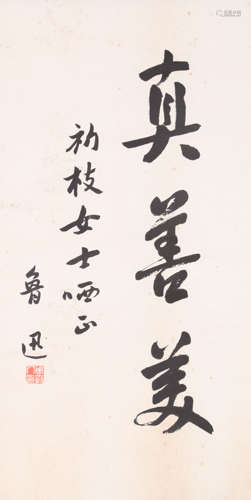 真善美
初枝女士哂正
魯迅